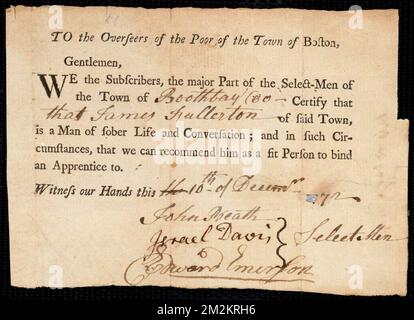 TO the Overseers of the Poor of the Town of Boston,
Gentlemen,
WE the Subscribers, the major Part of the Select-Men of
the Town of Boothbay Certify that
that James Fullerton of said Town,
is a Man of sober Life and Conversation; and in such Cir-
cumstances, that we can recommend him as a fit Person to bind
an Apprentice to.
Witness our Hands this 10th of Decemr
John Beath
Israel Davis
Select Men
Edward Emerson
alamy
Image ID: 2M2KRH6
www.alamy.com